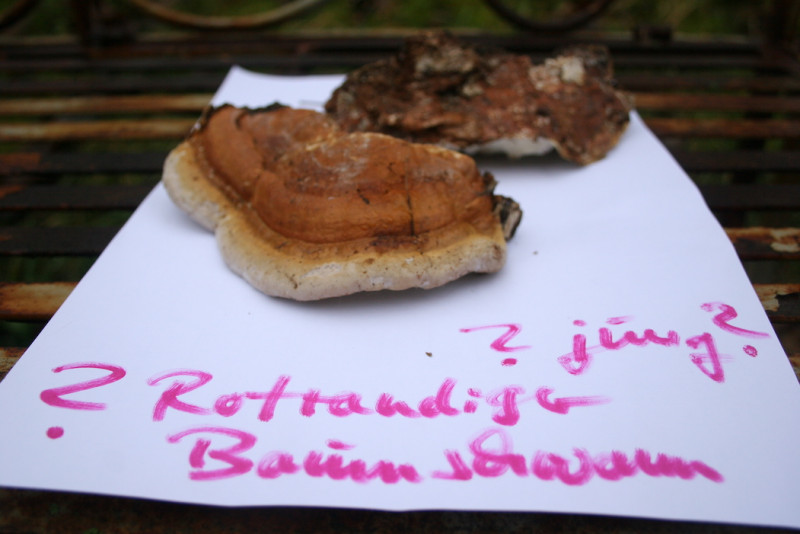 ? jung?
? Rotrandiger
Baumschwamm